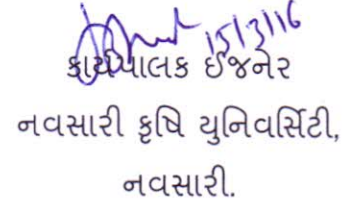 15/3/16
કાર્યપાલક ઈજનેર
નવસારી કૃષિ યુનિવર્સિટી,
નવસારી.